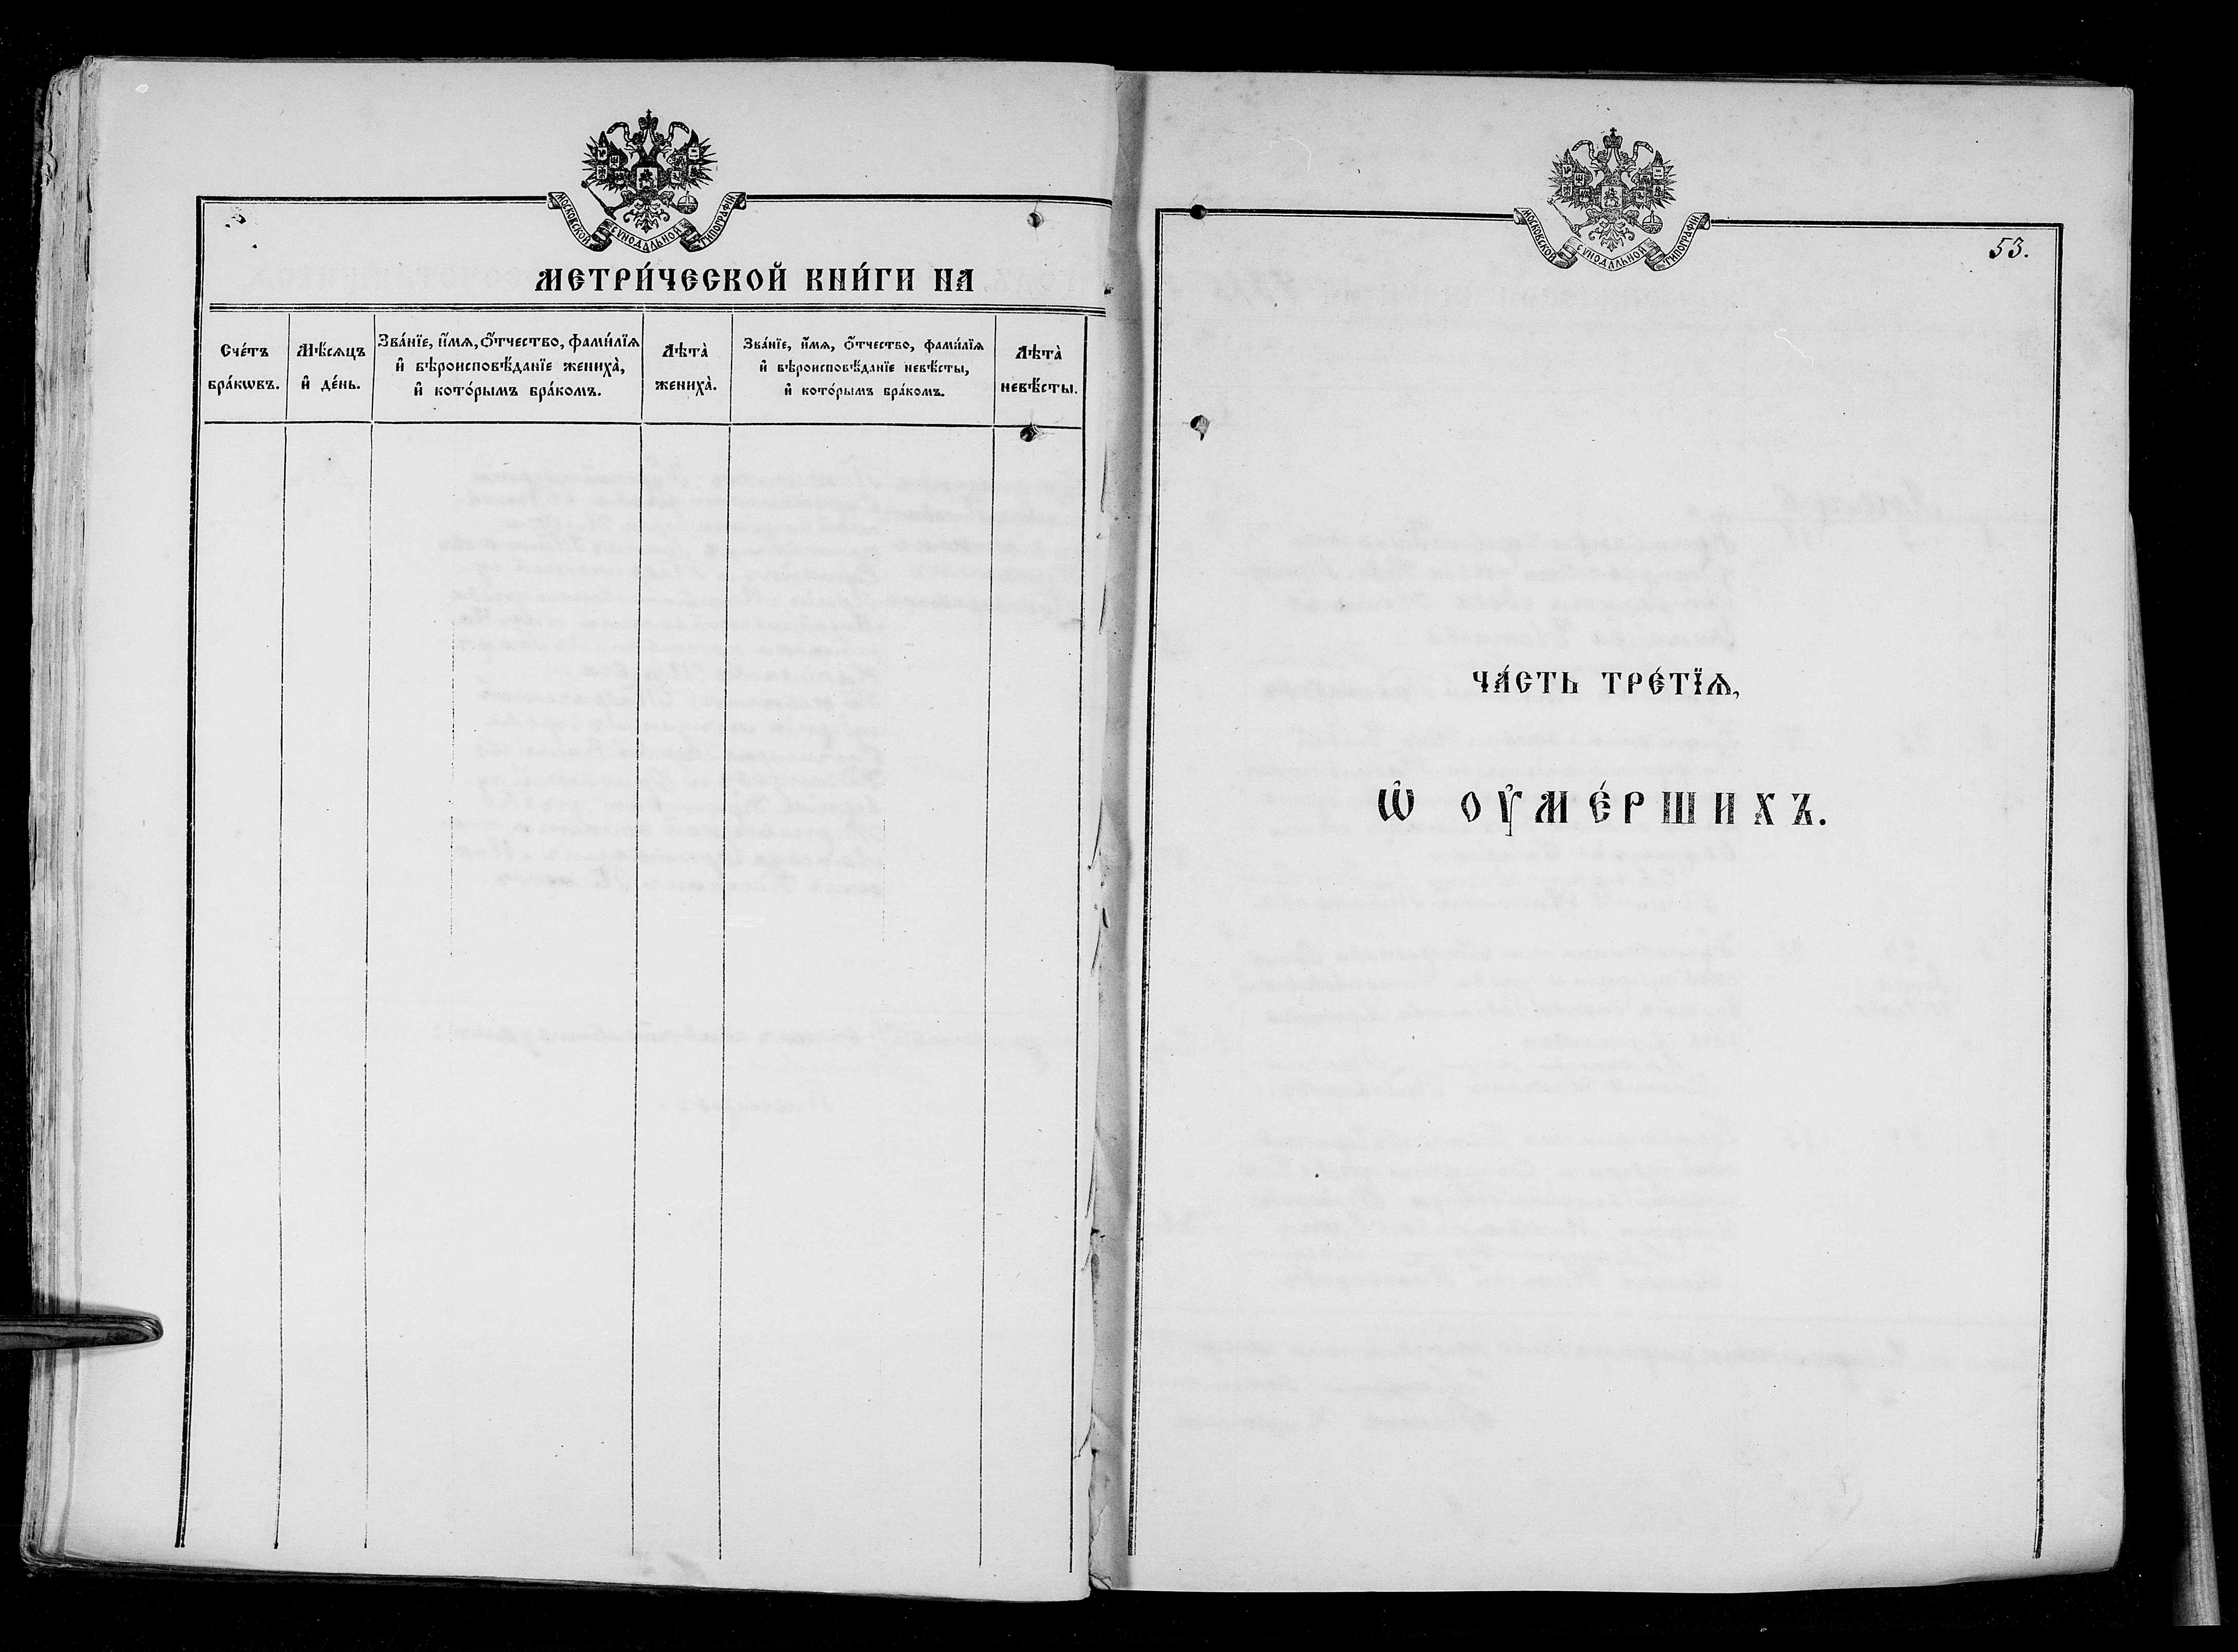 МОСКОВСКОЙ СѴНОДАЛЬНОЙ ТИПОГРАФІИ
МЕТРИ́ЧЕСКОЙ КНИ́ГИ НА
Сче́тъ
бра́кѡвъ.
Мѣ́сѧцъ
и҆ де́нь.
Зва́нїе, и҆́мѧ, ѻ҆́тчество, фами́лїѧ
и҆ вѣроисповѣ́данїе жениха̀,
и҆ кото́рымъ бра́комъ.
Лѣта̀
жениха̀.
Зва́нїе, и҆́мѧ, ѻ҆́тчество, фами́лїѧ
и҆ вѣроисповѣ́данїе невѣ́сты,
и҆ кото́рымъ бра́комъ.
Лѣта̀
невѣ́сты.
МОСКОВСКОЙ СѴНОДАЛЬНОЙ ТИПОГРАФІИ
53.
ЧА́СТЬ ТРЕ́ТЇѦ,
Ѡ҆ ОУ҆МЕ́РШИХЪ.